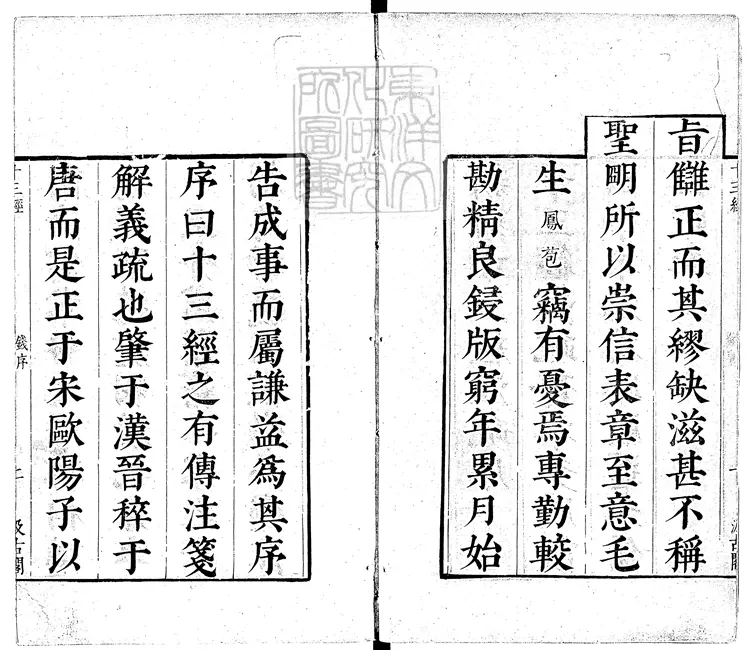 旨讎正而其繆缺滋甚不稱
聖明所以崇信表章至意毛
生鳳苞竊有憂焉專勤較
勘精良鋟版窮年累月始
告成事而屬謙益爲其序
序曰十三經之有傳注箋
解義疏也肇于漢晉稡于
唐而是正于宋歐陽子以
十三經
錢序
汲古閣
東洋文
化研究
所圖書